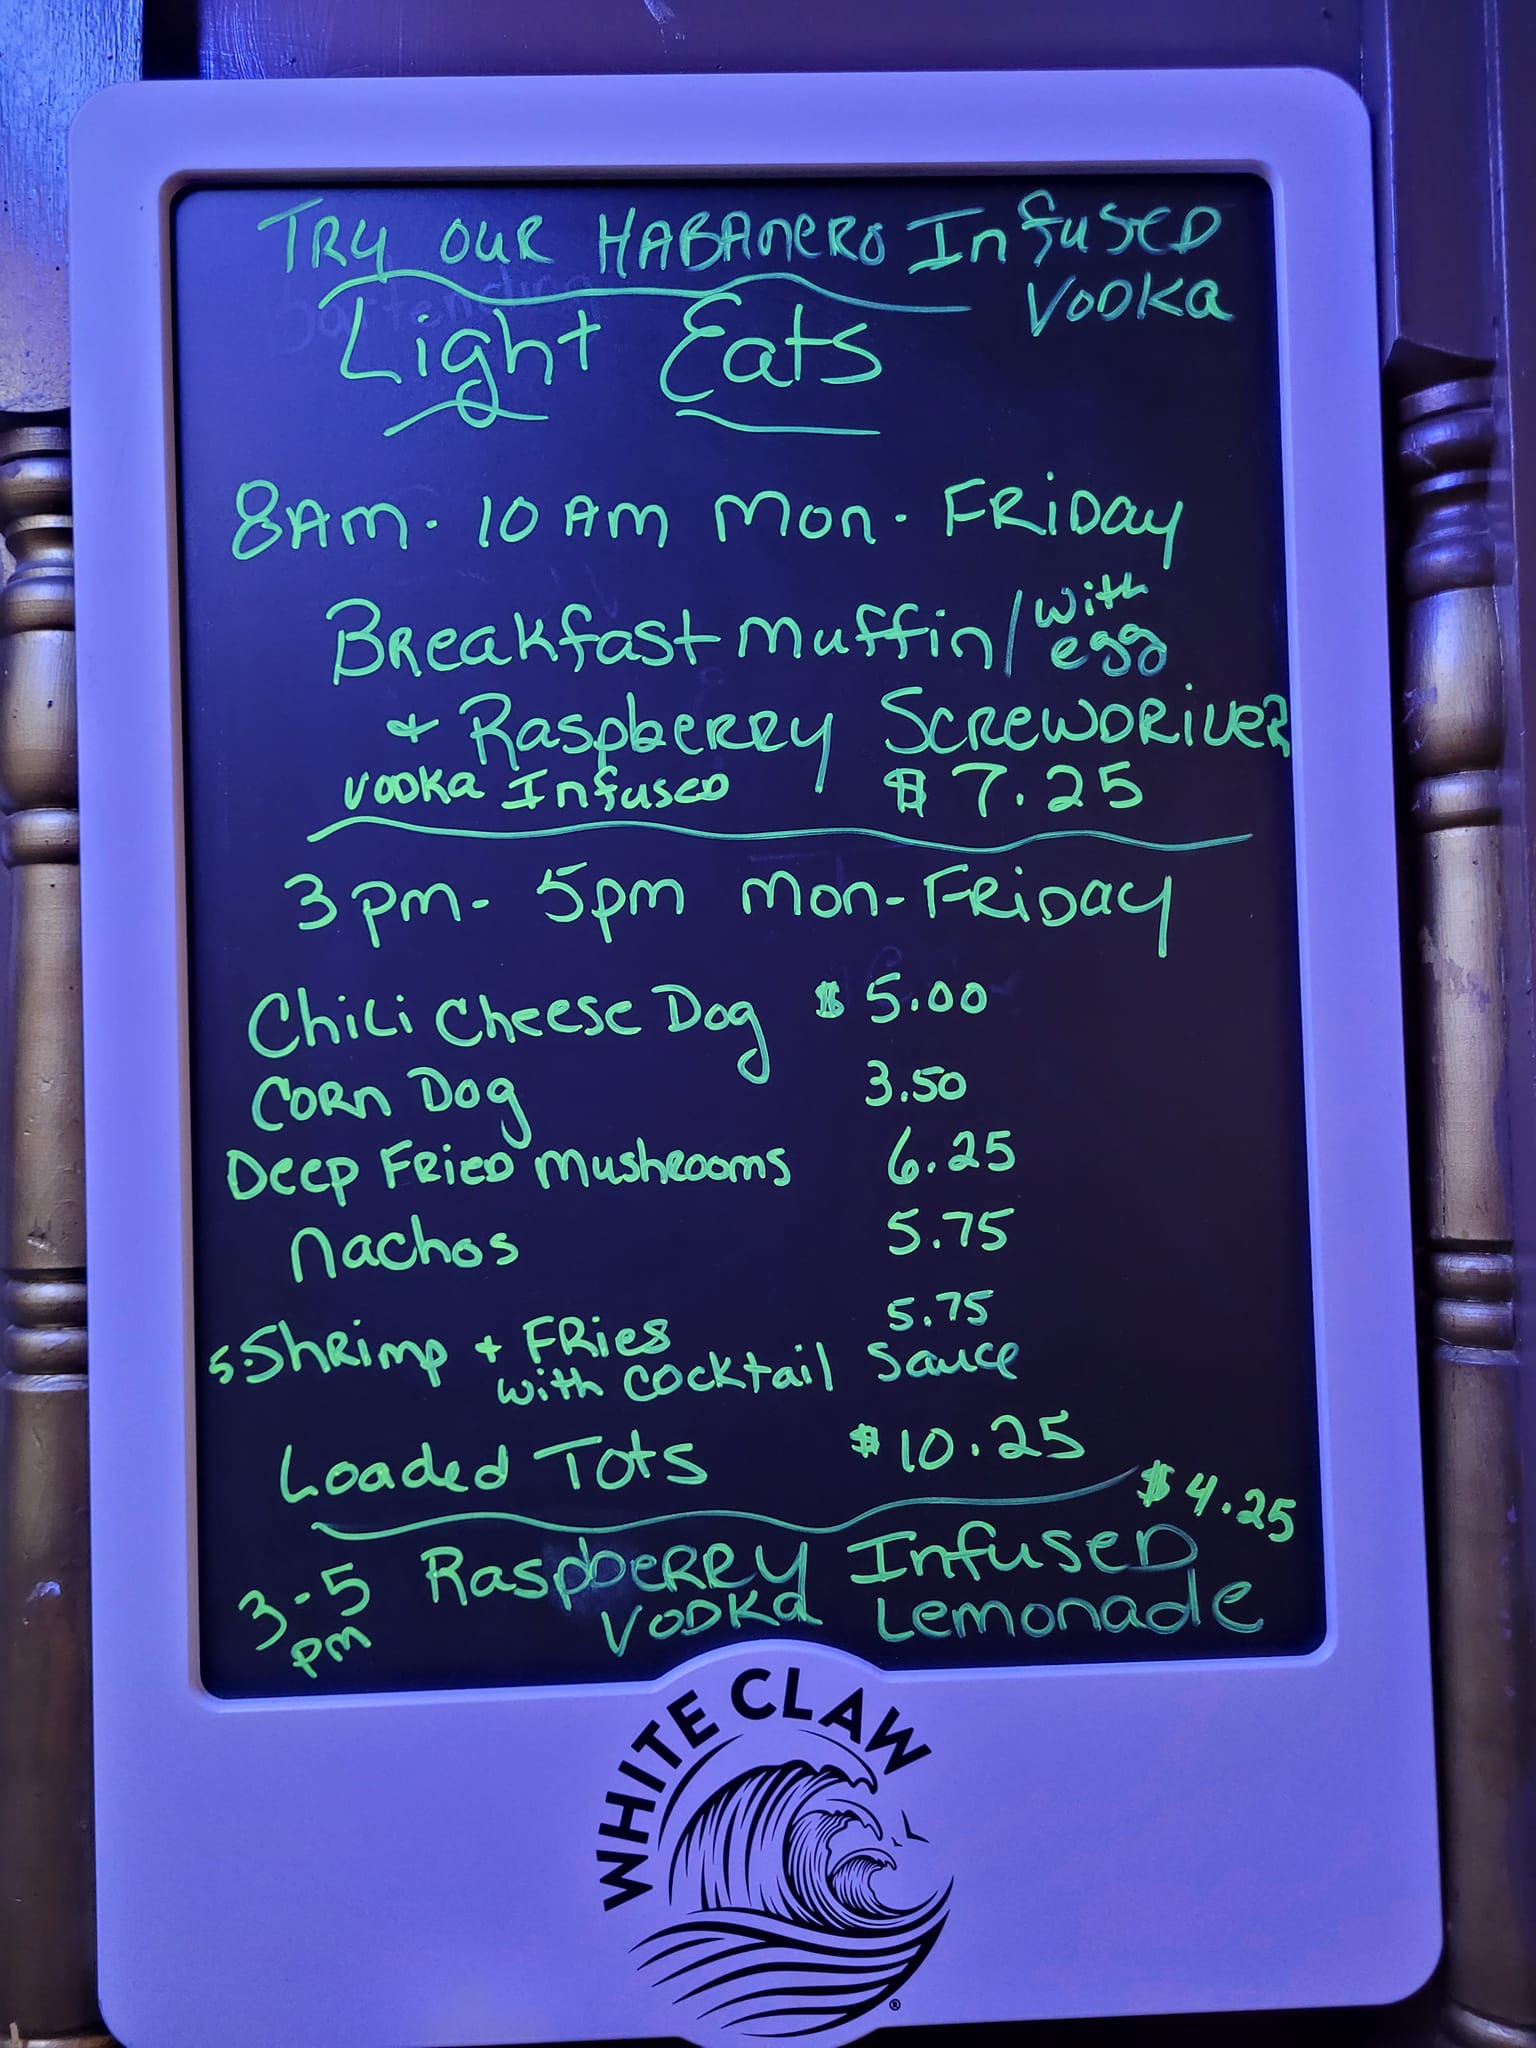 TRY OUR HABANERO INFUSED
VODKA
Light Eats
8AM - 10AM MON - FRIDAY
BREAKFAST MUFFIN / with egg
+ RASPBERRY SCREWDRIVER
VODKA INFUSED $7.25
3pm - 5pm MON - FRIDAY
Chili Cheese Dog $5.00
CORN DOG 3.50
DEEP FRIED MUSHROOMS 6.25
NACHOS 5.75
5. Shrimp + FRIES 5.75
with cocktail sauce
LOADED TOTS $10.25
$4.25
3-5 RASPBERRY INFUSED
pm VODKA LEMONADE
WHITE CLAW
®